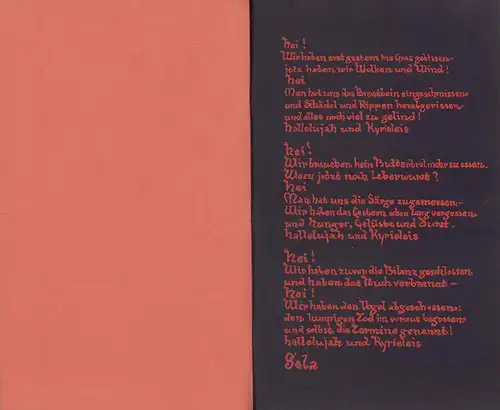 hei!
Wir haben erst gestern ins Gras gebissen-
jetz haben wir Wolken und Wind!
hei
Man hat uns das Brustbein eingeschmissen
und Schädel und Rippen herabgerissen
und alles noch viel zu gelind!
hallelujah und Kyrieleis
hei!
Wir brauchen kein Butterbrot mehr zu essen.
Wozu jetzt noch Leberwurst?
hei
Man hat uns die Särge zugemessen-
Wir haben das Gestern eben lang vergessen
und Hunger, Gelüste und Durst.
hallelujah und Kyrieleis
hei!
Wir haben zuvor die Bilanz geschlossen
und haben das Buch verbrannt-
hei!
Wir haben den Vogel abgeschossen:
den lumpigen Tod im voraus begossen
und selbst die Termine genannt!
hallelujah und Kyrieleis
Sela